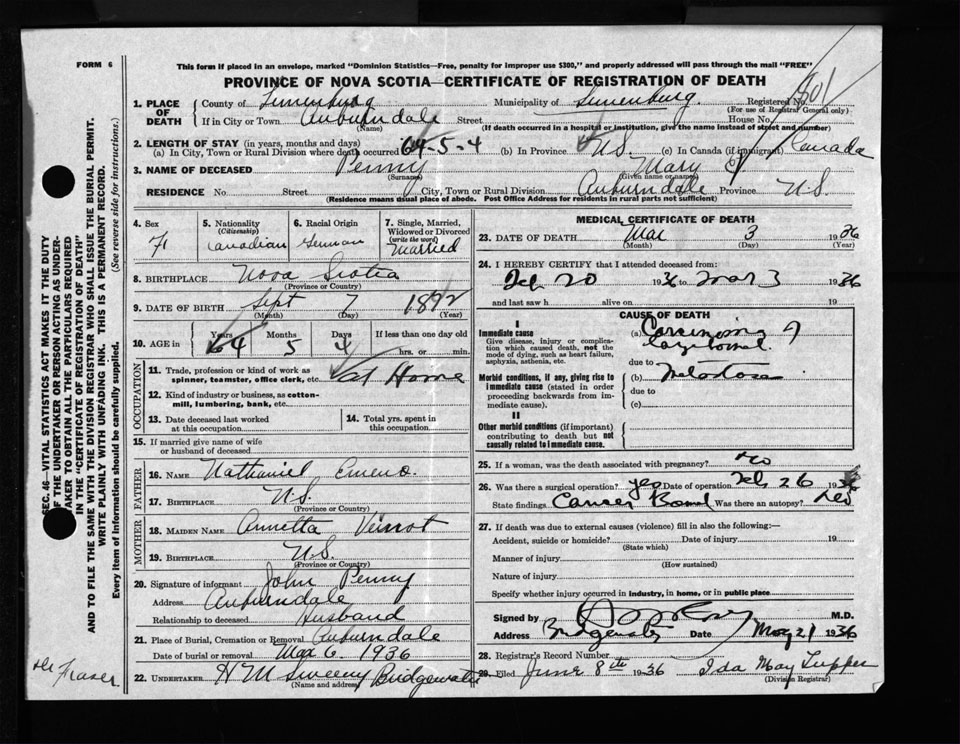 FORM 6
This form if placed in an envelope, marked "Dominion Statistics—Free, penalty for improper use $300," and properly addressed will pass through the mail "FREE"
PROVINCE OF NOVA SCOTIA—CERTIFICATE OF REGISTRATION OF DEATH
1. PLACE OF DEATH County of Lunenburg Municipality of Lunenburg. Registered No. 1801
(For use of Registrar General only)
If in City or Town Auburndale Street House No.
(Name) (If death occurred in a hospital or institution, give the name instead of street and number)
2. LENGTH OF STAY (in years, months and days)
(a) In City, Town or Rural Division where death occurred 64-5-4 (b) In Province N.S. (c) In Canada (if immigrant) Canada
3. NAME OF DECEASED Penny Mary J.
(Surname) (Given name or names)
RESIDENCE No. Street City, Town or Rural Division Auburndale Province N.S.
(Residence means usual place of abode. Post Office Address for residents in rural parts not sufficient)
4. Sex 5. Nationality (Citizenship) 6. Racial Origin 7. Single, Married, Widowed or Divorced (write the word)
F Canadian German Married
8. BIRTHPLACE Nova Scotia
(Province or Country)
9. DATE OF BIRTH Sept 7 1892
(Month) (Day) (Year)
10. AGE in Years Months Days If less than one day old
64 5 4 hrs. or min.
OCCUPATION
11. Trade, profession or kind of work as spinner, teamster, office clerk, etc. at Home
12. Kind of industry or business, as cotton-mill, lumbering, bank, etc.
13. Date deceased last worked at this occupation
14. Total yrs. spent in this occupation
15. If married give name of wife or husband of deceased
FATHER
16. NAME Nathaniel Emeno.
17. BIRTHPLACE N.S.
(Province or Country)
MOTHER
18. MAIDEN NAME Annetta Veinot
19. BIRTHPLACE N.S.
(Province or Country)
20. Signature of informant John Penny
Address Auburndale
Relationship to deceased Husband
21. Place of Burial, Cremation or Removal Auburndale
Date of burial or removal Mar 6. 1936
22. UNDERTAKER H M Sweeny Bridgewater
MEDICAL CERTIFICATE OF DEATH
23. DATE OF DEATH Mar 3 1936
(Month) (Day) (Year)
24. I HEREBY CERTIFY that I attended deceased from:
Feb 20 1936 to Mar 3 1936
and last saw h alive on 19
CAUSE OF DEATH
I
Immediate cause (a) Carcinoma of
Give disease, injury or complication which caused death, not the mode of dying, such as heart failure, asphyxia, asthenia, etc.
due to
Morbid conditions, if any, giving rise to immediate cause (stated in order proceeding backwards from immediate cause). (b)
due to
(c)
II
Other morbid conditions (if important) contributing to death but not causally related to immediate cause.
25. If a woman, was the death associated with pregnancy? No
26. Was there a surgical operation? yes Date of operation Feb 26 1936
State findings Cancer Bowel Was there an autopsy? No
27. If death was due to external causes (violence) fill in also the following:—
Accident, suicide or homicide? Date of injury 19
(State which)
Manner of injury
(How sustained)
Nature of injury
Specify whether injury occurred in industry, in home, or in public place
Signed by M.D.
Address Bridgewater Date May 21 1936
28. Registrar's Record Number
29. Filed June 8th 1936 Ida May Tupper
(Division Registrar)
SEC. 46—VITAL STATISTICS ACT MAKES IT THE DUTY
OF THE UNDERTAKER OR PERSON ACTING AS UNDER-
TAKER TO OBTAIN ALL THE PARTICULARS REQUIRED
IN THE "CERTIFICATE OF REGISTRATION OF DEATH"
AND TO FILE THE SAME WITH THE DIVISION REGISTRAR WHO SHALL ISSUE THE BURIAL PERMIT.
WRITE PLAINLY WITH UNFADING INK. THIS IS A PERMANENT RECORD.
Every item of information should be carefully supplied. (See reverse side for instructions.)
Fraser